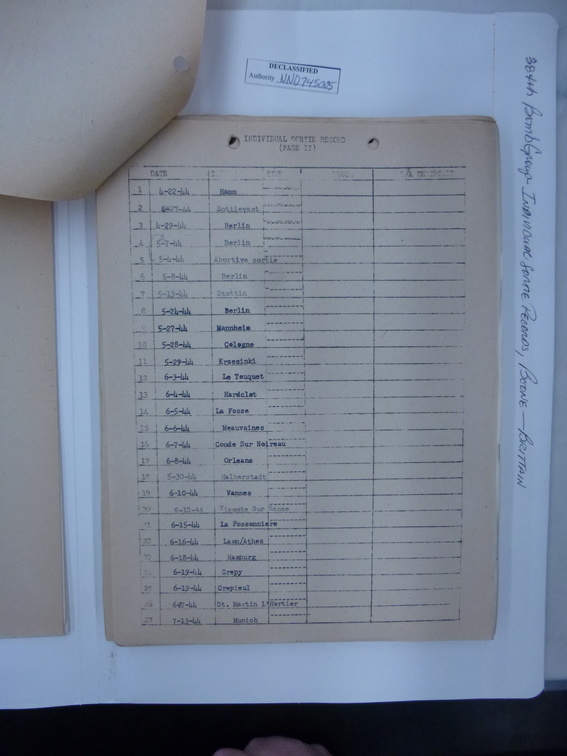 DECLASSIFIED
Authority NND 745005
384th Bomb Group - Individual Sortie Records, Boone — Brittain
INDIVIDUAL SORTIE RECORD
(PAGE II)
DATE
1 4-22-44 Hamm
2 4-27-44 Sottlevast
3 4-29-44 Berlin
4 5-7-44 Berlin
5 5-4-44 Abortive sortie
6 5-8-44 Berlin
7 5-13-44 Stettin
8 5-24-44 Berlin
9 5-27-44 Mannheim
10 5-28-44 Cologne
11 5-29-44 Krzesinki
12 6-3-44 Le Touquet
13 6-4-44 Hardelot
14 6-5-44 La Fosse
15 6-6-44 Meauvaines
16 6-7-44 Conde Sur Noireau
17 6-8-44 Orleans
18 5-30-44 Halberstadt
19 6-10-44 Vannes
20 Sur
21 6-15-44 La Possonniere
22 6-16-44 Laon/Athes
23 6-18-44 Hamburg
24 6-19-44 Crepy
25 6-19-44 Crepieul
26 St. Martin L'Hortier
27 7-13-44 Munich